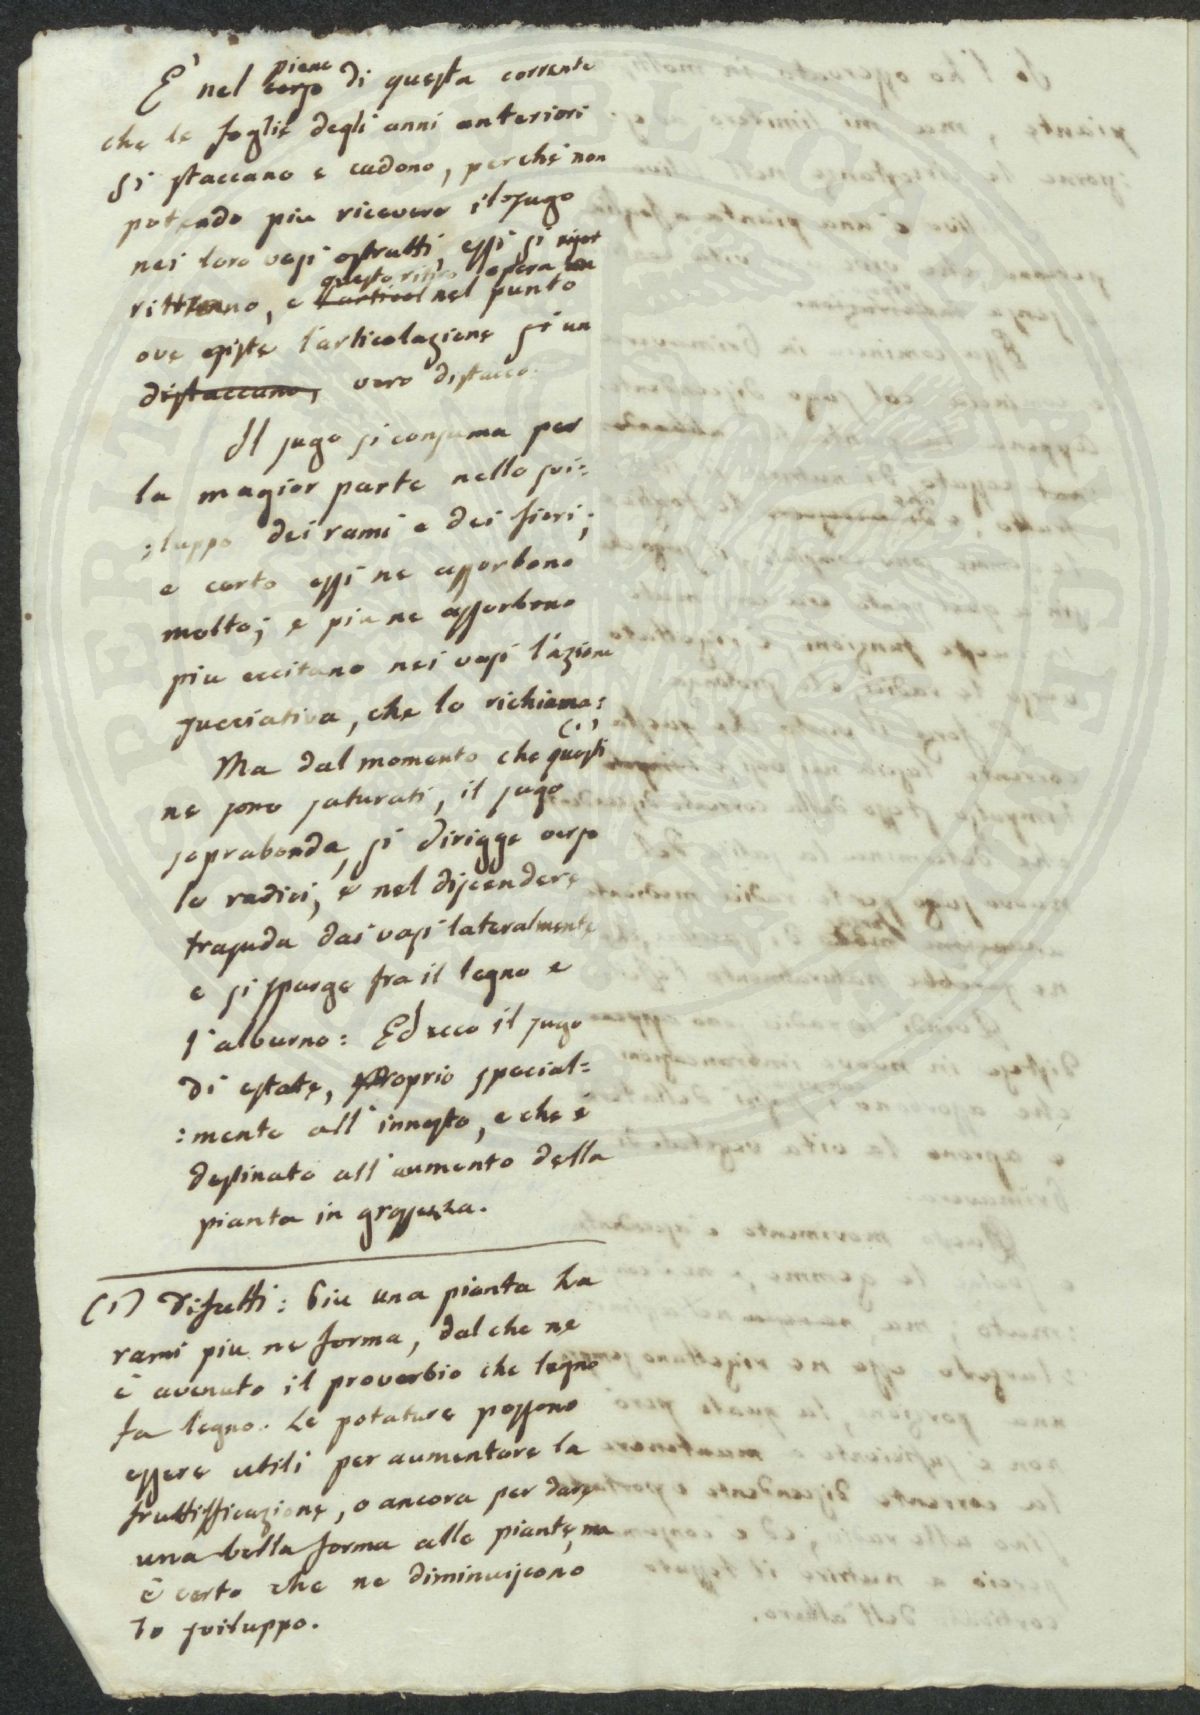 E' nel corso piene di questa corrente
che le foglie degli anni anteriori
si staccano e cadono, perchè non
potendo piu ricevere il sugo
nei loro vasi ostrutti, essi si
rittirano, e questo ritiro opera nel punto
ove esiste l'articolazione si un
distaccano, vero distacco.
Il sugo si consuma per
la magior parte nello svi=
:luppo dei rami e dei fiori;
e certo essi ne assorbono
molto; e piu ne assorbono
piu eccitano nei vasi l'azione
succiativa, che lo richiama:
(1)
Ma dal momento che questi
ne sono saturati, il sugo
soprabonda, si dirigge verso
le radici, e nel discendere
trasuda dai vasi lateralmente
e si sparge fra il legno e
l'alburno: Ed ecco il sugo
di estate, proprio special=
:mente all'innesto, e che è
destinato all'aumento della
pianta in grossezza.
(1) Difatti: Piu una pianta ha
rami piu ne forma, dal che ne
è avenuto il proverbio che legno
fa legno. Le potature possono
essere utili per aumentare la
fruttifficazione, o ancora per dare
una bella forma alle piante, ma
è certo che ne diminuiscono
lo sviluppo.